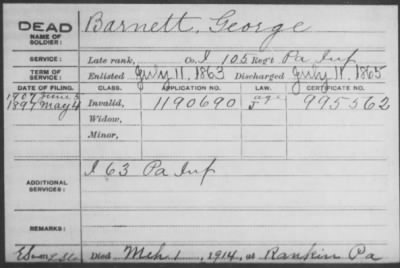 DEAD
NAME OF SOLDIER: Barnett, George
SERVICE: Late rank, Co. I 105 Regt Pa Inf
TERM OF SERVICE: Enlisted July 11, 1863 Discharged July 11, 1865
DATE OF FILING. CLASS. APPLICATION NO. LAW. CERTIFICATE NO.
1907 June
1897 May 4 Invalid, 1190690 age 995562
Widow,
Minor,
ADDITIONAL SERVICES: I 63 Pa Inf
REMARKS:
Died Mch 1, 1914, at Rankin Pa